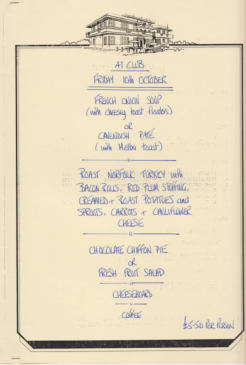 A1 CLUB
FRIDAY 10th OCTOBER
FRENCH ONION SOUP
(with cheesey toast floaters)
OR
CAVENDISH PATE
(with Melba toast)
ROAST NORFOLK TURKEY with
BACON ROLLS, RED PLUM STUFFING,
CREAMED + ROAST POTATOES and
SPROUTS, CARROTS + CAULIFLOWER
CHEESE
CHOCOLATE CHIFFON PIE
OR
FRESH FRUIT SALAD
CHEESEBOARD
COFFEE
£5.50 PER PERSON